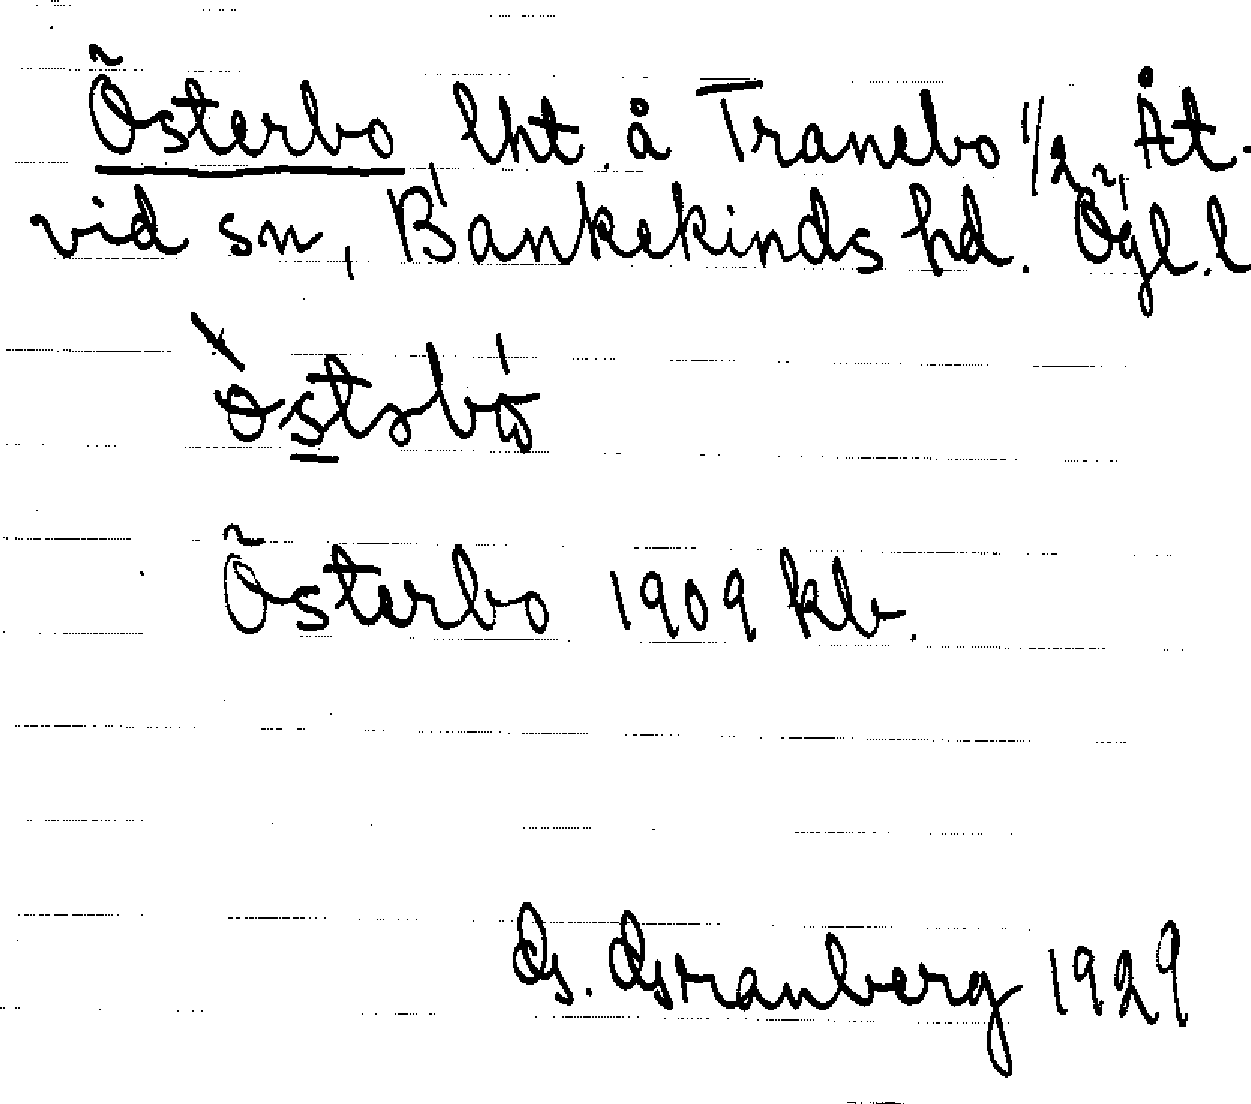 Österbo lht. å Tranebo 1/2, Åt-
vid sn, Bankekinds hd. Ögl. l
Österbo 1909 kb.
G. Granberg 1929